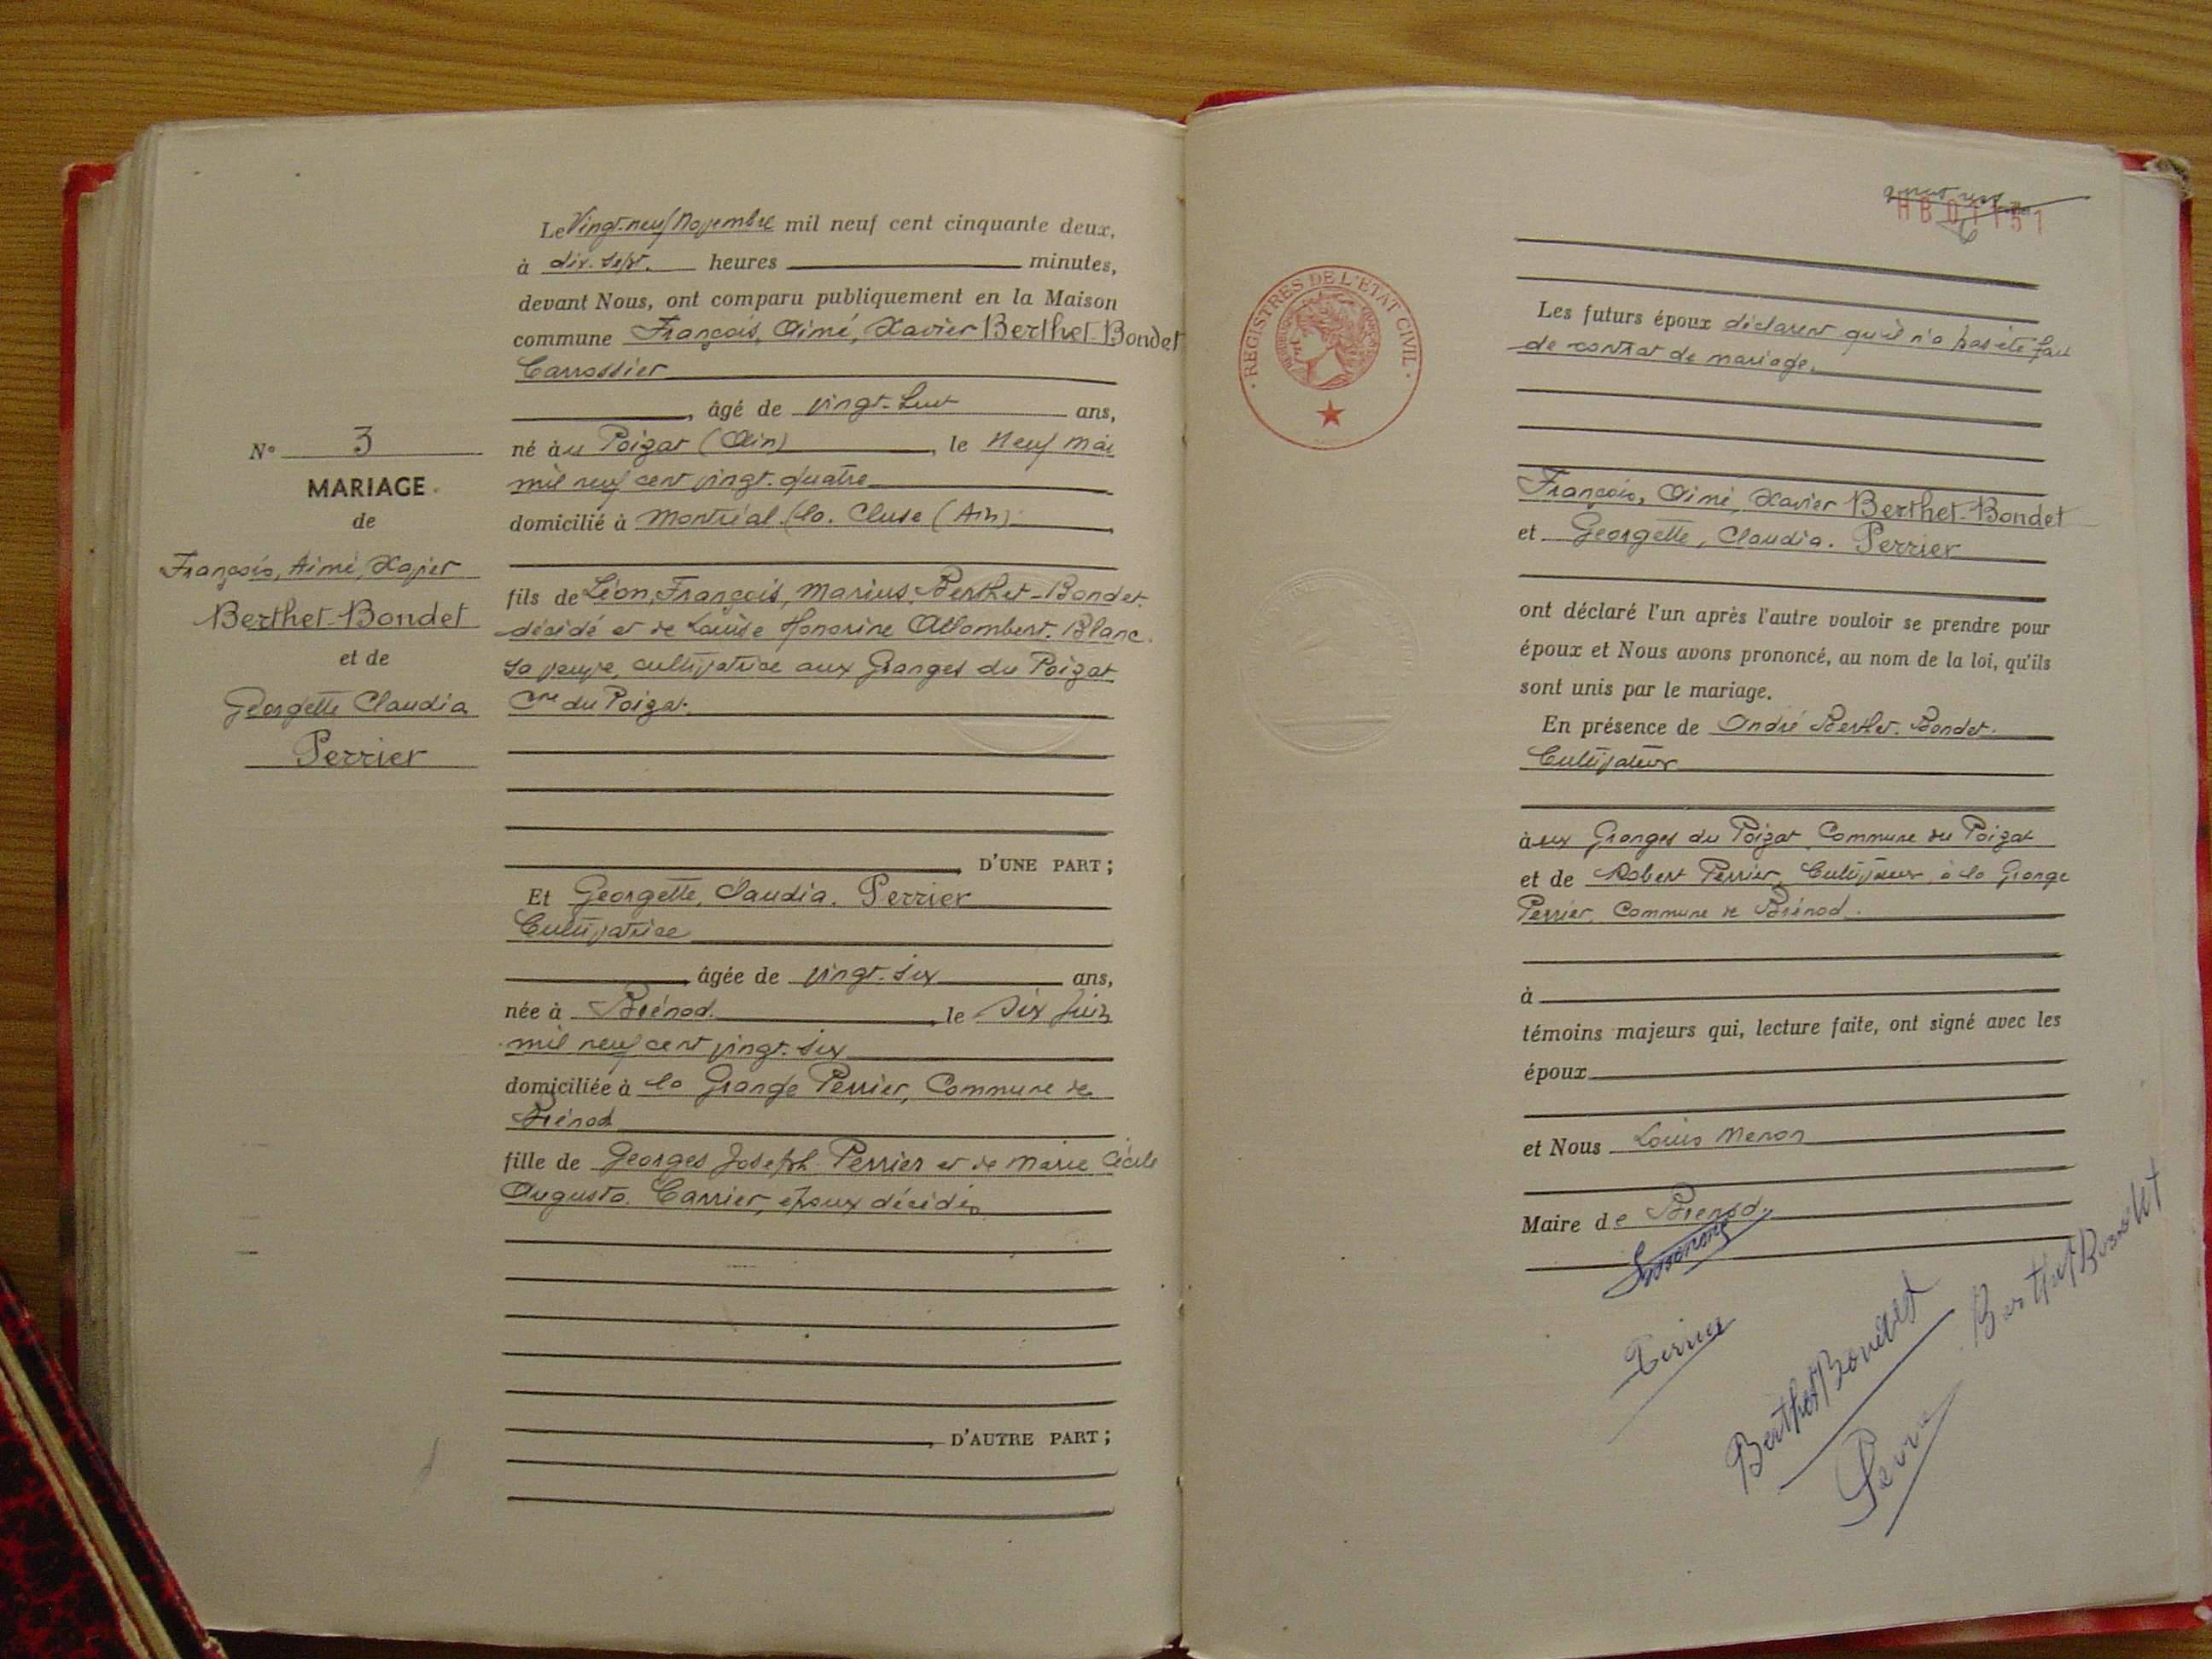 N° 3
MARIAGE
de
François, Aimé, Xavier
Berthet-Bondet
et de
Georgette Claudia
Perrier
Le Vingt-neuf Novembre mil neuf cent cinquante deux,
à dix-sept heures minutes,
devant Nous, ont comparu publiquement en la Maison
commune François, Aimé, Xavier Berthet-Bondet
Carrossier
, âgé de vingt-huit ans,
né au Poizat (Ain), le Neuf mai
mil neuf cent vingt-quatre
domicilié à Montréal-la-Cluse (Ain)
fils de Léon, François, Marius, Berthet-Bondet
décédé et de Louise Honorine Allombert-Blanc
sa veuve, cultivatrice aux Granges du Poizat
Cne du Poizat.
, D'UNE PART ;
Et Georgette, Claudia. Perrier
Cultivatrice
, âgée de vingt-six ans,
née à Brénod, le Six Juin
mil neuf cent vingt-six
domiciliée à la Grange Perrier, Commune de
Brénod
fille de Georges Joseph Perrier et de Marie Cécile
Augusta. Carrier, époux décédés
, D'AUTRE PART ;
REGISTRES DE L'ETAT CIVIL
Les futurs époux déclarent qu'il n'a pas été fait
de contrat de mariage.
François, Aimé, Xavier Berthet-Bondet
et Georgette, Claudia. Perrier
ont déclaré l'un après l'autre vouloir se prendre pour
époux et Nous avons prononcé, au nom de la loi, qu'ils
sont unis par le mariage.
En présence de André Berthet-Bondet
Cultivateur
à aux Granges du Poizat Commune du Poizat
et de Robert Perrier, Cultivateur, à la Grange
Perrier, Commune de Brénod.
à
témoins majeurs qui, lecture faite, ont signé avec les
époux
et Nous Louis
Maire de Brénod
Perrier
Berthet Bondet
Berthet Bondet